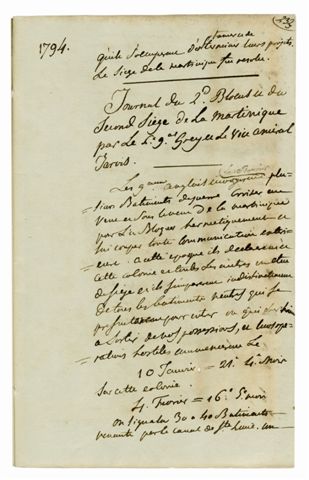 1794.
qu'ils s'occuperent d'assurer leurs projets.
Le Siege de la martinique fut resolu.
Journal du 2.d Blocus et du
Second Siège de La Martinique
par Le L.t g.al Grey et Le Vice amiral
Jarvis.
Les anglois envoyerent plu-
sieurs Batiments de guerre croiser au
vent et sous le vent de la martinique
pour La Bloquer hermetiquement et
lui couper toute communication exteri-
eure. a cette epoque ils declarerent
cette colonie et toutes Les autres en etat
de siege et ils s'emparerent indistinctement
de tous les batiments neutres qui se
presenterent pour entrer ou qui
a sortir de nos possessions, et leurs ope-
rations hostiles commencerent Le
10 Janvier = 21. 4.e mois
Sur cette colonie.
4. Fevrier = 16.e 5.e mois
on signala 30 a 40 Batiments
venants par le canal de S.te Lucie. un